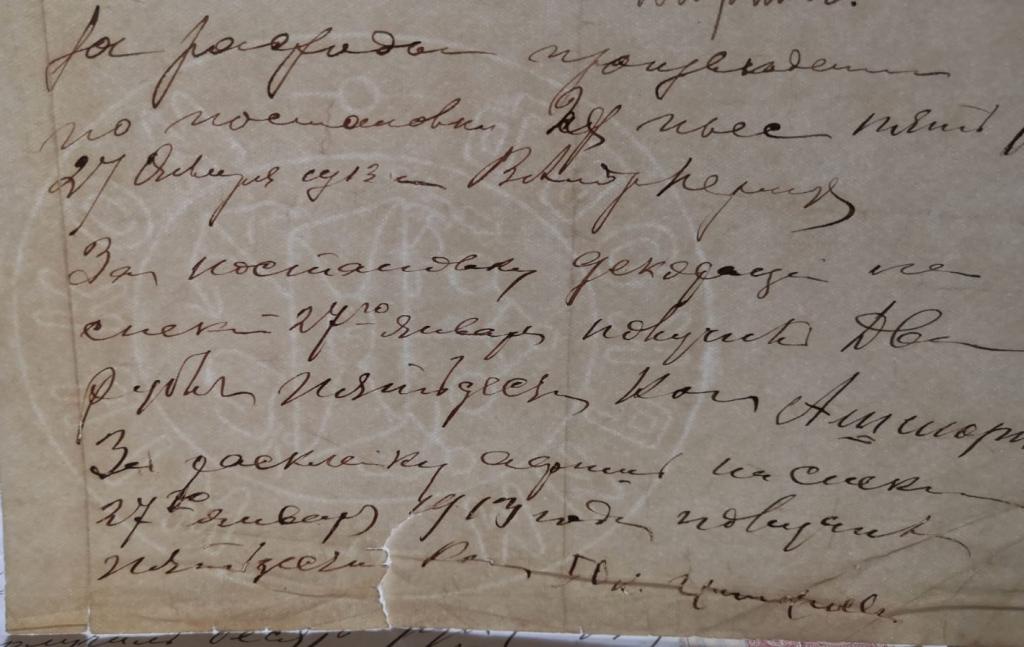 За расходы произведенны
по постановки 2х пьес пять р
27 Января 1913 г
За постановку декораци на
спект 27го Январ получил Два
рубл пятьдеся Коп
За расклейку афиш на спек
27го январ 1913 года получил
пятьдеся Коп